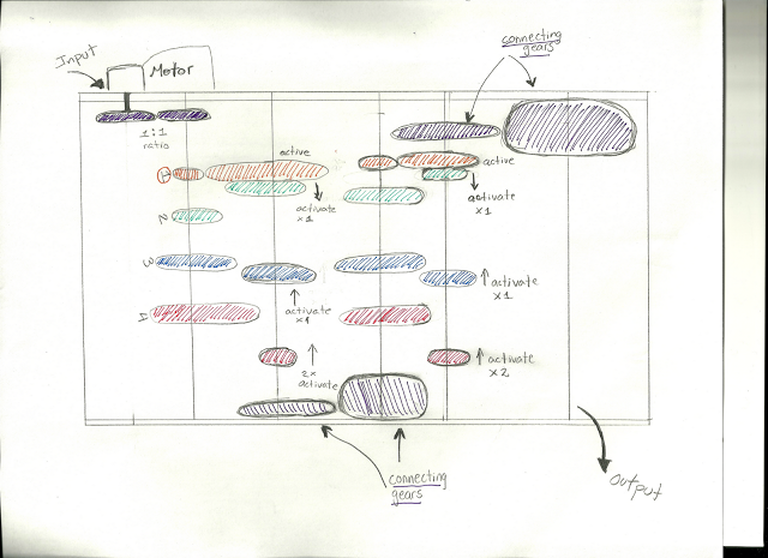 Input
Motor
connecting
gears
1:1
ratio
active
active
1
activate
x1
activate
x1
2
3
activate
x1
activate
x1
4
2x
activate
activate
x2
connecting
gears
Output